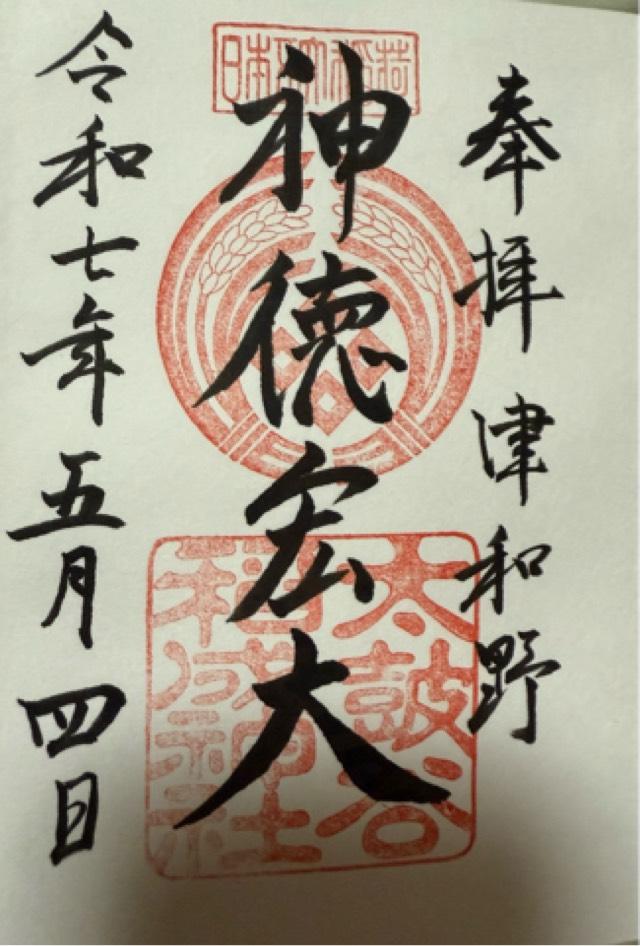 奉拝 津和野
日本五大稲荷
神徳宏大
太鼓谷
稲成神社
令和七年五月四日